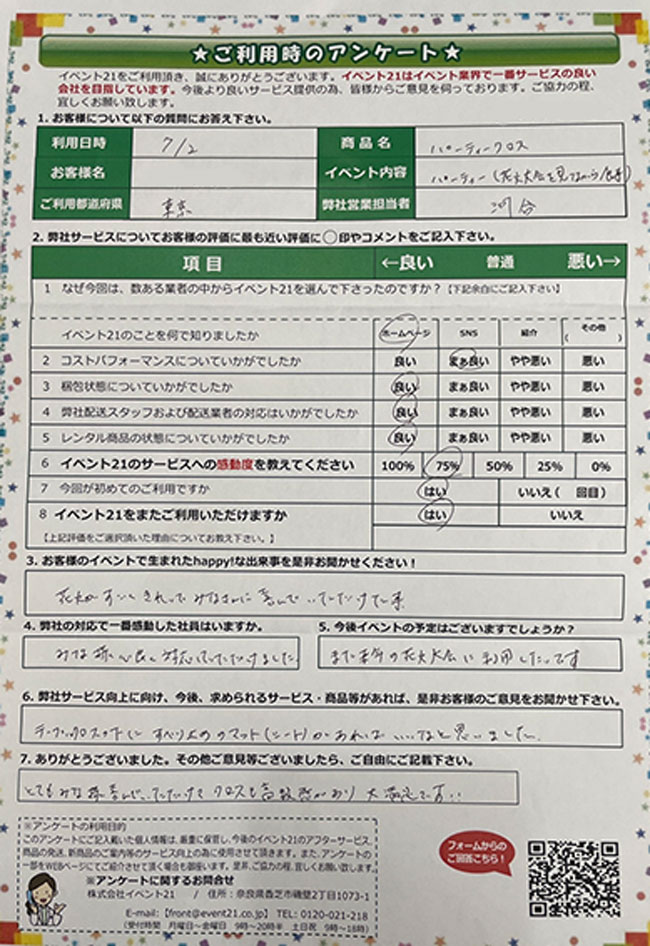 ★ご利用時のアンケート★
イベント21をご利用頂き、誠にありがとうございます。イベント21はイベント業界で一番サービスの良い
会社を目指しています。今後より良いサービス提供の為、皆様からご意見を伺っております。ご協力の程、
宜しくお願い致します。
1. お客様について以下の質問にお答え下さい。
利用日時 7/2 商品名 パーティークロス
お客様名 イベント内容 パーティー(花火大会を見ながら
ご利用都道府県 東京 弊社営業担当者 河合
2. 弊社サービスについてお客様の評価に最も近い評価に○印やコメントをご記入下さい。
項目 ←良い 普通 悪い→
1 なぜ今回は、数ある業者の中からイベント21を選んで下さったのですか?【下記余白にご記入下さい】
イベント21のことを何で知りましたか ホームページ SNS 紹介 その他( )
2 コストパフォーマンスについていかがでしたか 良い まぁ良い やや悪い 悪い
3 梱包状態についていかがでしたか 良い まぁ良い やや悪い 悪い
4 弊社配送スタッフおよび配送業者の対応はいかがでしたか 良い まぁ良い やや悪い 悪い
5 レンタル商品の状態についていかがでしたか 良い まぁ良い やや悪い 悪い
6 イベント21のサービスへの感動度を教えてください 100% 75% 50% 25% 0%
7 今回が初めてのご利用ですか はい いいえ( 回目)
8 イベント21をまたご利用いただけますか はい いいえ
【上記評価をご選択頂いた理由についてお教え下さい。】
3. お客様のイベントで生まれたhappy!な出来事を是非お聞かせください!
花火がすごくきれいでみなさんに喜んでいただけた事
4. 弊社の対応で一番感動した社員はいますか。 5. 今後イベントの予定はございますでしょうか?
みな様心良く対応していただけました。 また来年の花火大会に利用したいです
6. 弊社サービス向上に向け、今後、求められるサービス・商品等があれば、是非お客様のご意見をお聞かせ下さい。
テーブルクロスの下にすべり止めのマット(シート)があればいいなと思いました。
7. ありがとうございました。その他ご意見等ございましたら、ご自由にご記載下さい。
とてもみな様喜んでいただけてクロスも高級感があり大満足です!!
※アンケートの利用目的
このアンケートにご記入戴いた個人情報は、厳重に保管し、今後のイベント21のアフターサービス、
商品の発送、新商品のご案内等のサービス向上の為に使用させて頂きます。また、アンケートの
一部をWEBページにてご紹介させて頂く場合も御座います。是非、ご協力の程、宜しくお願い致します。
※アンケートに関するお問合せ
株式会社イベント21 / 住所:奈良県香芝市磯壁2丁目1073-1
E-mail:【front@event21.co.jp】 TEL: 0120-021-218
(受付時間 月曜日~金曜日 9時~20時半 土日祝 9時~18時)
フォームからの
ご回答こちら!